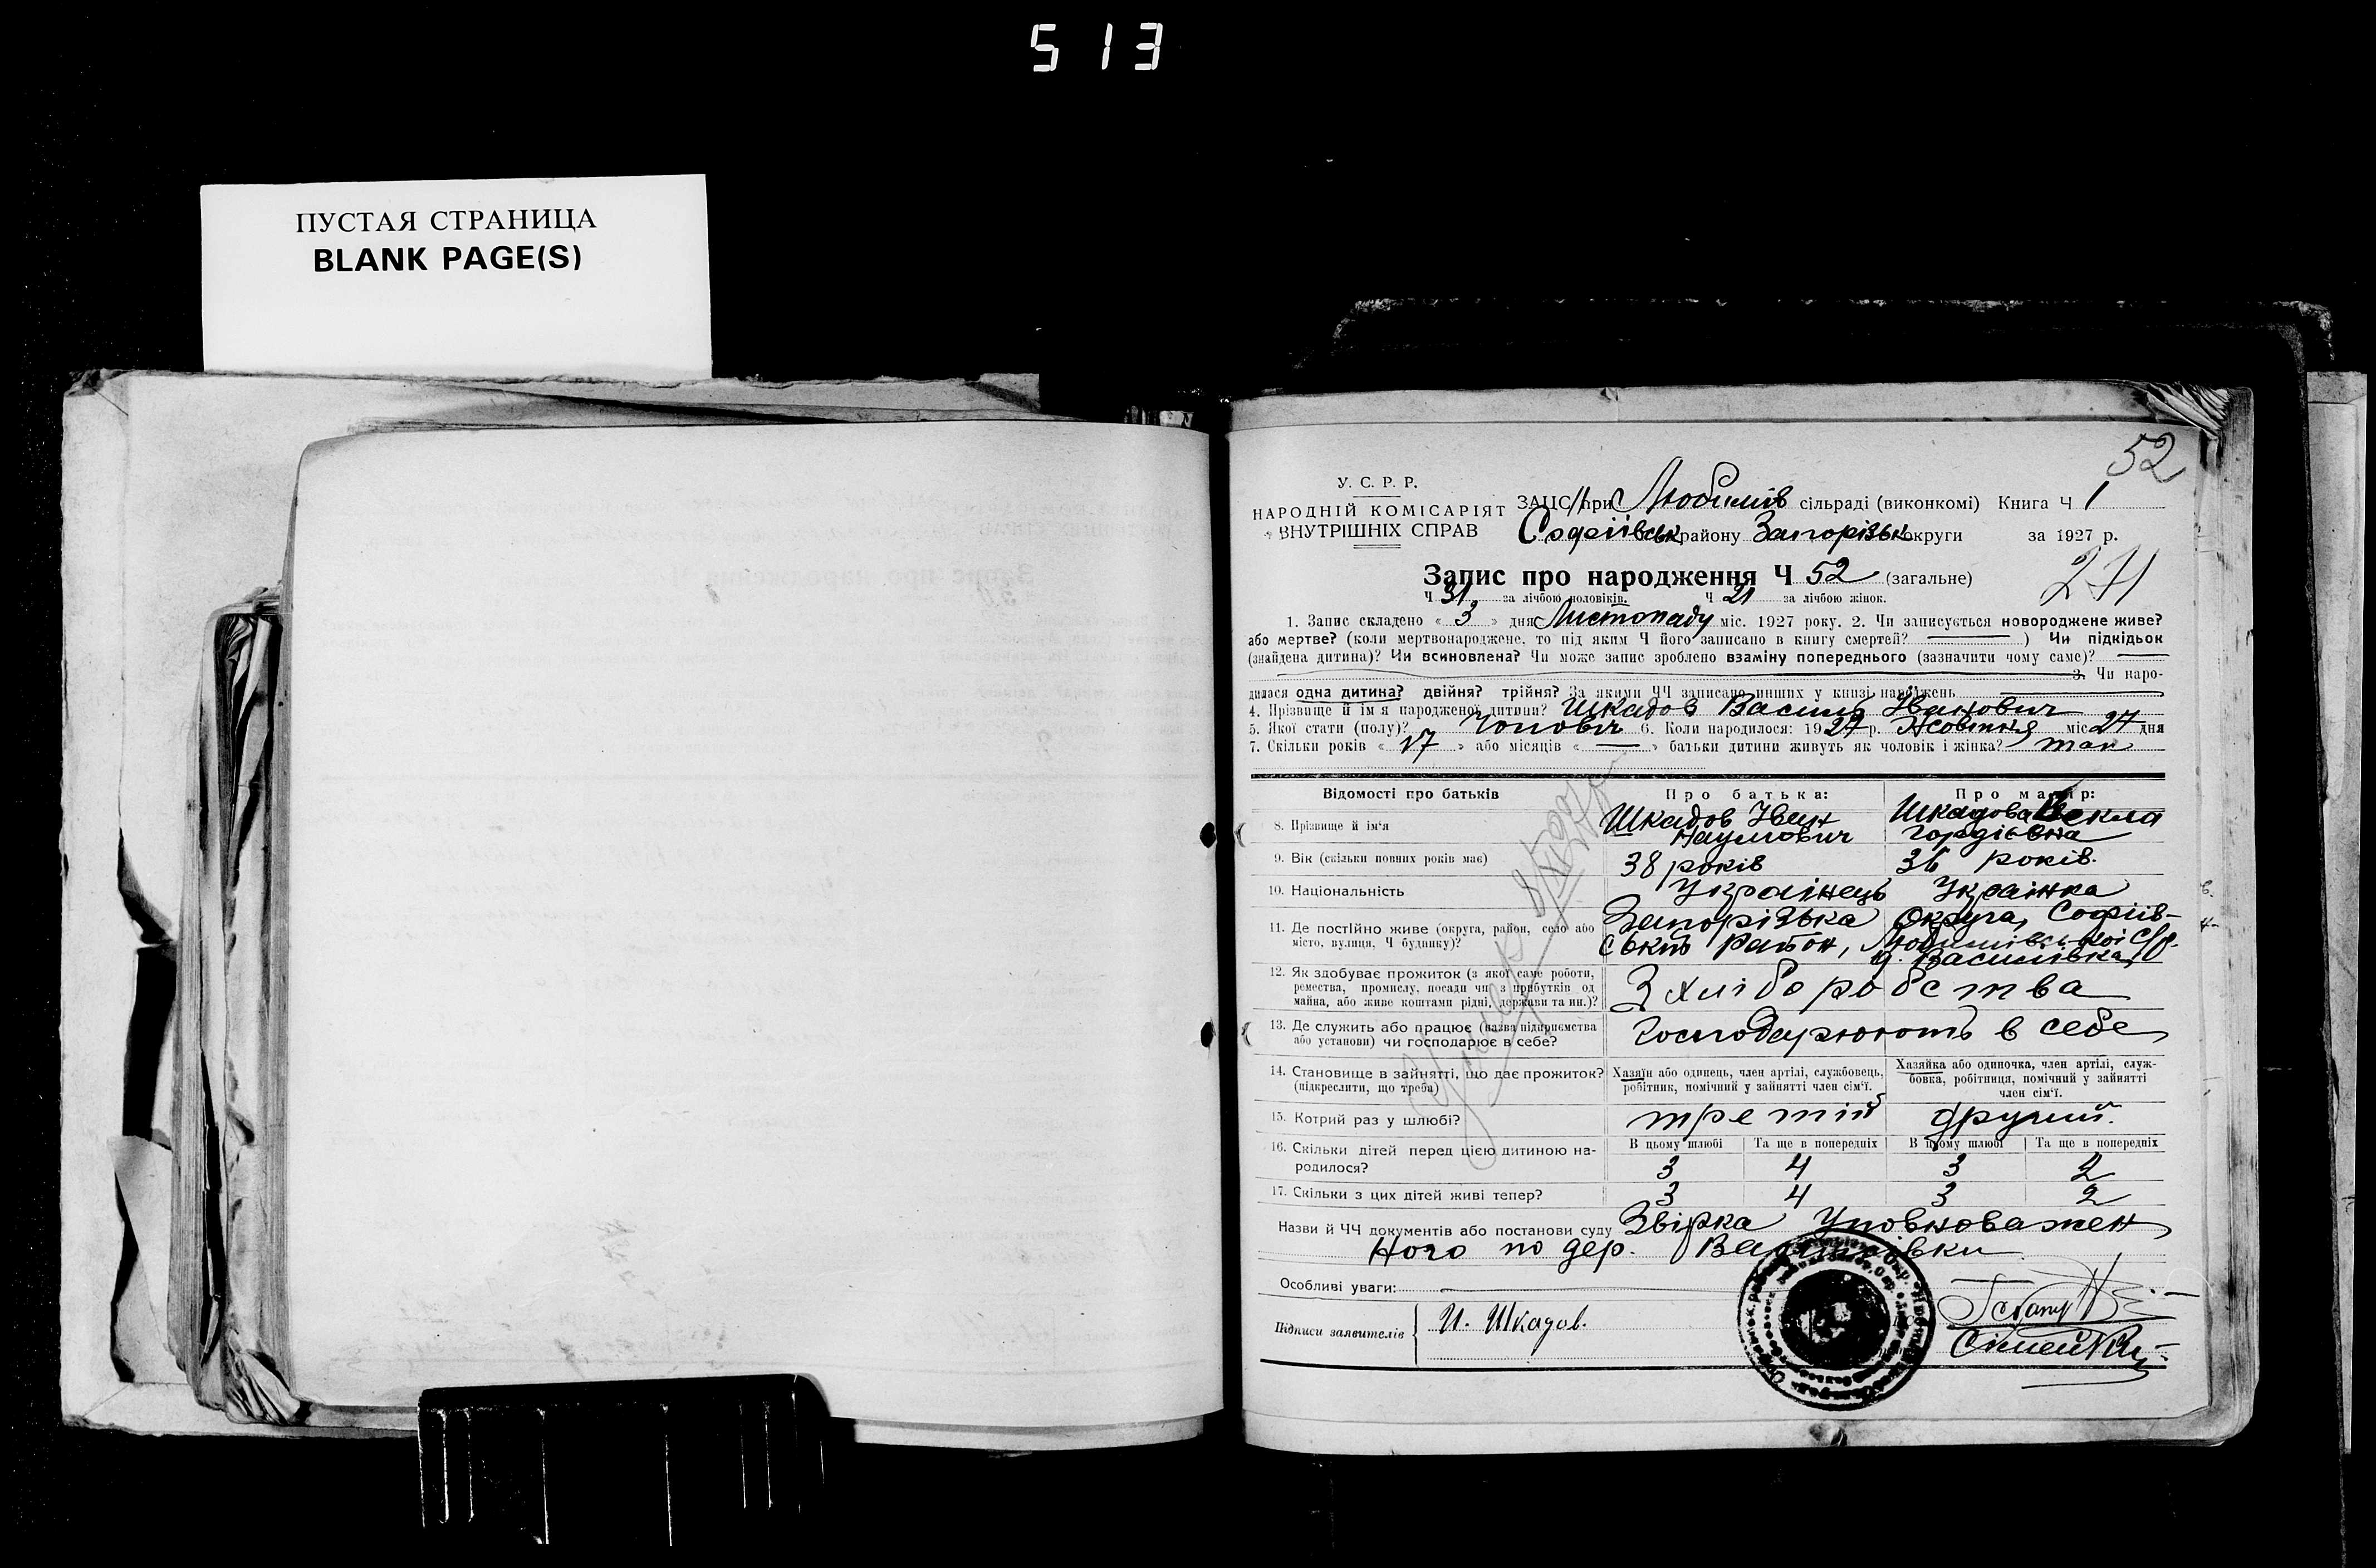 513
ПУСТАЯ СТРАНИЦА
BLANK PAGE(S)
52
У. С. Р. Р.
НАРОДНІЙ КОМІСАРІЯТ
ВНУТРІШНІХ СПРАВ
ЗАЦС при Любимів сільраді (виконкомі) Книга Ч 1
Софіївськ району Запорізьк округи за 1927 р.
Запис про народження Ч 52 (загальне)
271
Ч 31 за лічбою чоловіків. Ч 21 за лічбою жінок.
1. Запис складено « 3 » дня Листопаду міс. 1927 року. 2. Чи записується новороджене живе?
або мертве? (коли мертвонароджене, то під яким Ч його записано в книгу смертей? ) Чи підкідьок
(знайдена дитина)? Чи всиновлена? Чи може запис зроблено взаміну попереднього (зазначити чому саме)?
3. Чи наро-
дилася одна дитина? двійня? трійня? За якими ЧЧ записано инших у книзі народжень
4. Прізвище й ім'я народженої дитини? Шкадов Василь Іванович
5. Якої стати (полу)? Чоловіч 6. Коли народилося: 1927 р. Жовтня міс 27 дня
7. Скільки років « 17 » або місяців « — » батьки дитини живуть як чоловік і жінка? так
Відомості про батьків
Про батька:
Про матір:
8. Прізвище й ім'я
Шкадов Іван Наумович
Шкадова Векла Гордієвна
9. Вік (скільки повних років має)
38 років
36 років.
10. Національність
Українець
Українка
11. Де постійно живе (округа, район, село або
місто, вулиця, Ч будинку)?
Запорізька Округа, Софіїв-
ський район, Любимівської с/р.
д. Василівка
12. Як здобуває прожиток (з якої саме роботи,
ремества, промислу, посади чи з прибутків од
майна, або живе коштами рідні, держави та ин.)?
З хліборобства
13. Де служить або працює (назва підприємства
або установи) чи господарює в себе?
Господарюють в себе
14. Становище в зайнятті, що дає прожиток?
(підкреслити, що треба)
Хазяїн або одинець, член артілі, службовець,
робітник, помічний у зайнятті член сім'ї.
Хазяйка або одиночка, член артілі, служ-
бовка, робітниця, помічний у зайнятті
член сім'ї.
15. Котрий раз у шлюбі?
третій
другий.
16. Скільки дітей перед цією дитиною на-
родилося?
В цьому шлюбі Та ще в попередніх В цьому шлюбі Та ще в попередніх
3 4 3 2
17. Скільки з цих дітей живі тепер?
3 4 3 2
Назви й ЧЧ документів або постанови суду Звірка Уповноважен
ного по дер.
Особливі уваги:
Підписи заявителів
И. Шкадов.